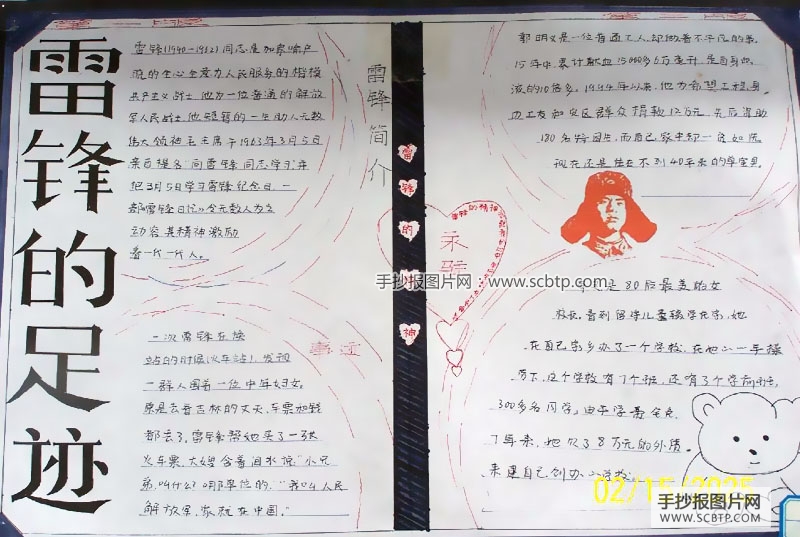 雷锋的足迹
雷锋简介
雷锋(1940-1962)同志是
现的全心全意为人民服务的楷模
共产主义战士,他为一位普通的解放
军人战士,他短暂的一生助人无数
伟大领袖毛主席于1963年3月5日
亲笔提名"向雷锋同志学习",并
把3月5日学习雷锋纪念日,一
部《雷锋日记》令无数人为之
动容,其精神激励
着一代一代人。
事迹
一次雷锋在换
站的时候(火车站),发现
一群人围着一位中年妇女。
原是去吉林的丈夫,车票加钱
都丢了,雷锋帮她买了一张
火车票,大嫂含着泪水说"小兄
弟,叫什么?哪单位的,""我叫人民
解放军,家就在中国。"
雷锋的精神
郭明义是一位普通工人,却做着不平凡的事。
15年中,累计献血
液的10倍多,1994年以来,他为希望工程,身
边工友和灾区群众捐款12万元,先后资助
180名特困生,而自己家中却一贫如洗
现在还是住在不到40平米的单室里。
雷锋的精神
永驻
是80后最美的女
校长,看到留守儿童辍学在家,她
在自己家乡办了一个学校,在她一手操
劳下,这个学校有7个班,还有3个学前班,
300多名同学,由
7年来,她欠了8万元的外债。
来建自己创办
手抄报图片网:www.scbtp.com
02/15/2025
手抄报图片网
WWW.SCBTP.COM